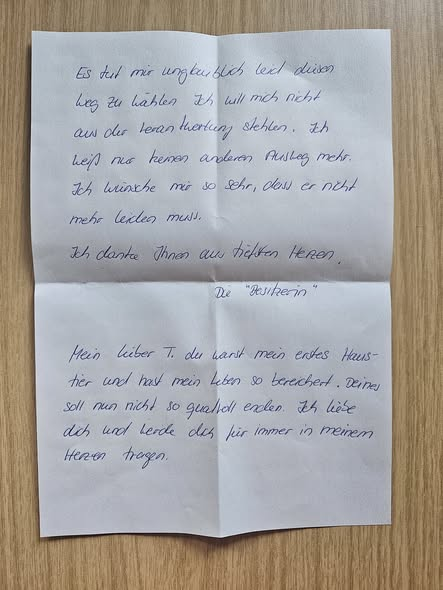 Es tut mir unglaublich leid diesen
Weg zu wählen Ich will mich nicht
aus der Verantwortung stehlen. Ich
weiß nur keinen anderen Ausweg mehr.
Ich wünsche mir so sehr, dass er nicht
mehr leiden muss.
Ich danke Ihnen aus tiefsten Herzen.
Die "Besitzerin"
Mein lieber T. du warst mein erstes Haus-
tier und hast mein Leben so bereichert. Deines
soll nun nicht so qualvoll enden. Ich liebe
dich und werde dich für immer in meinem
Herzen tragen.